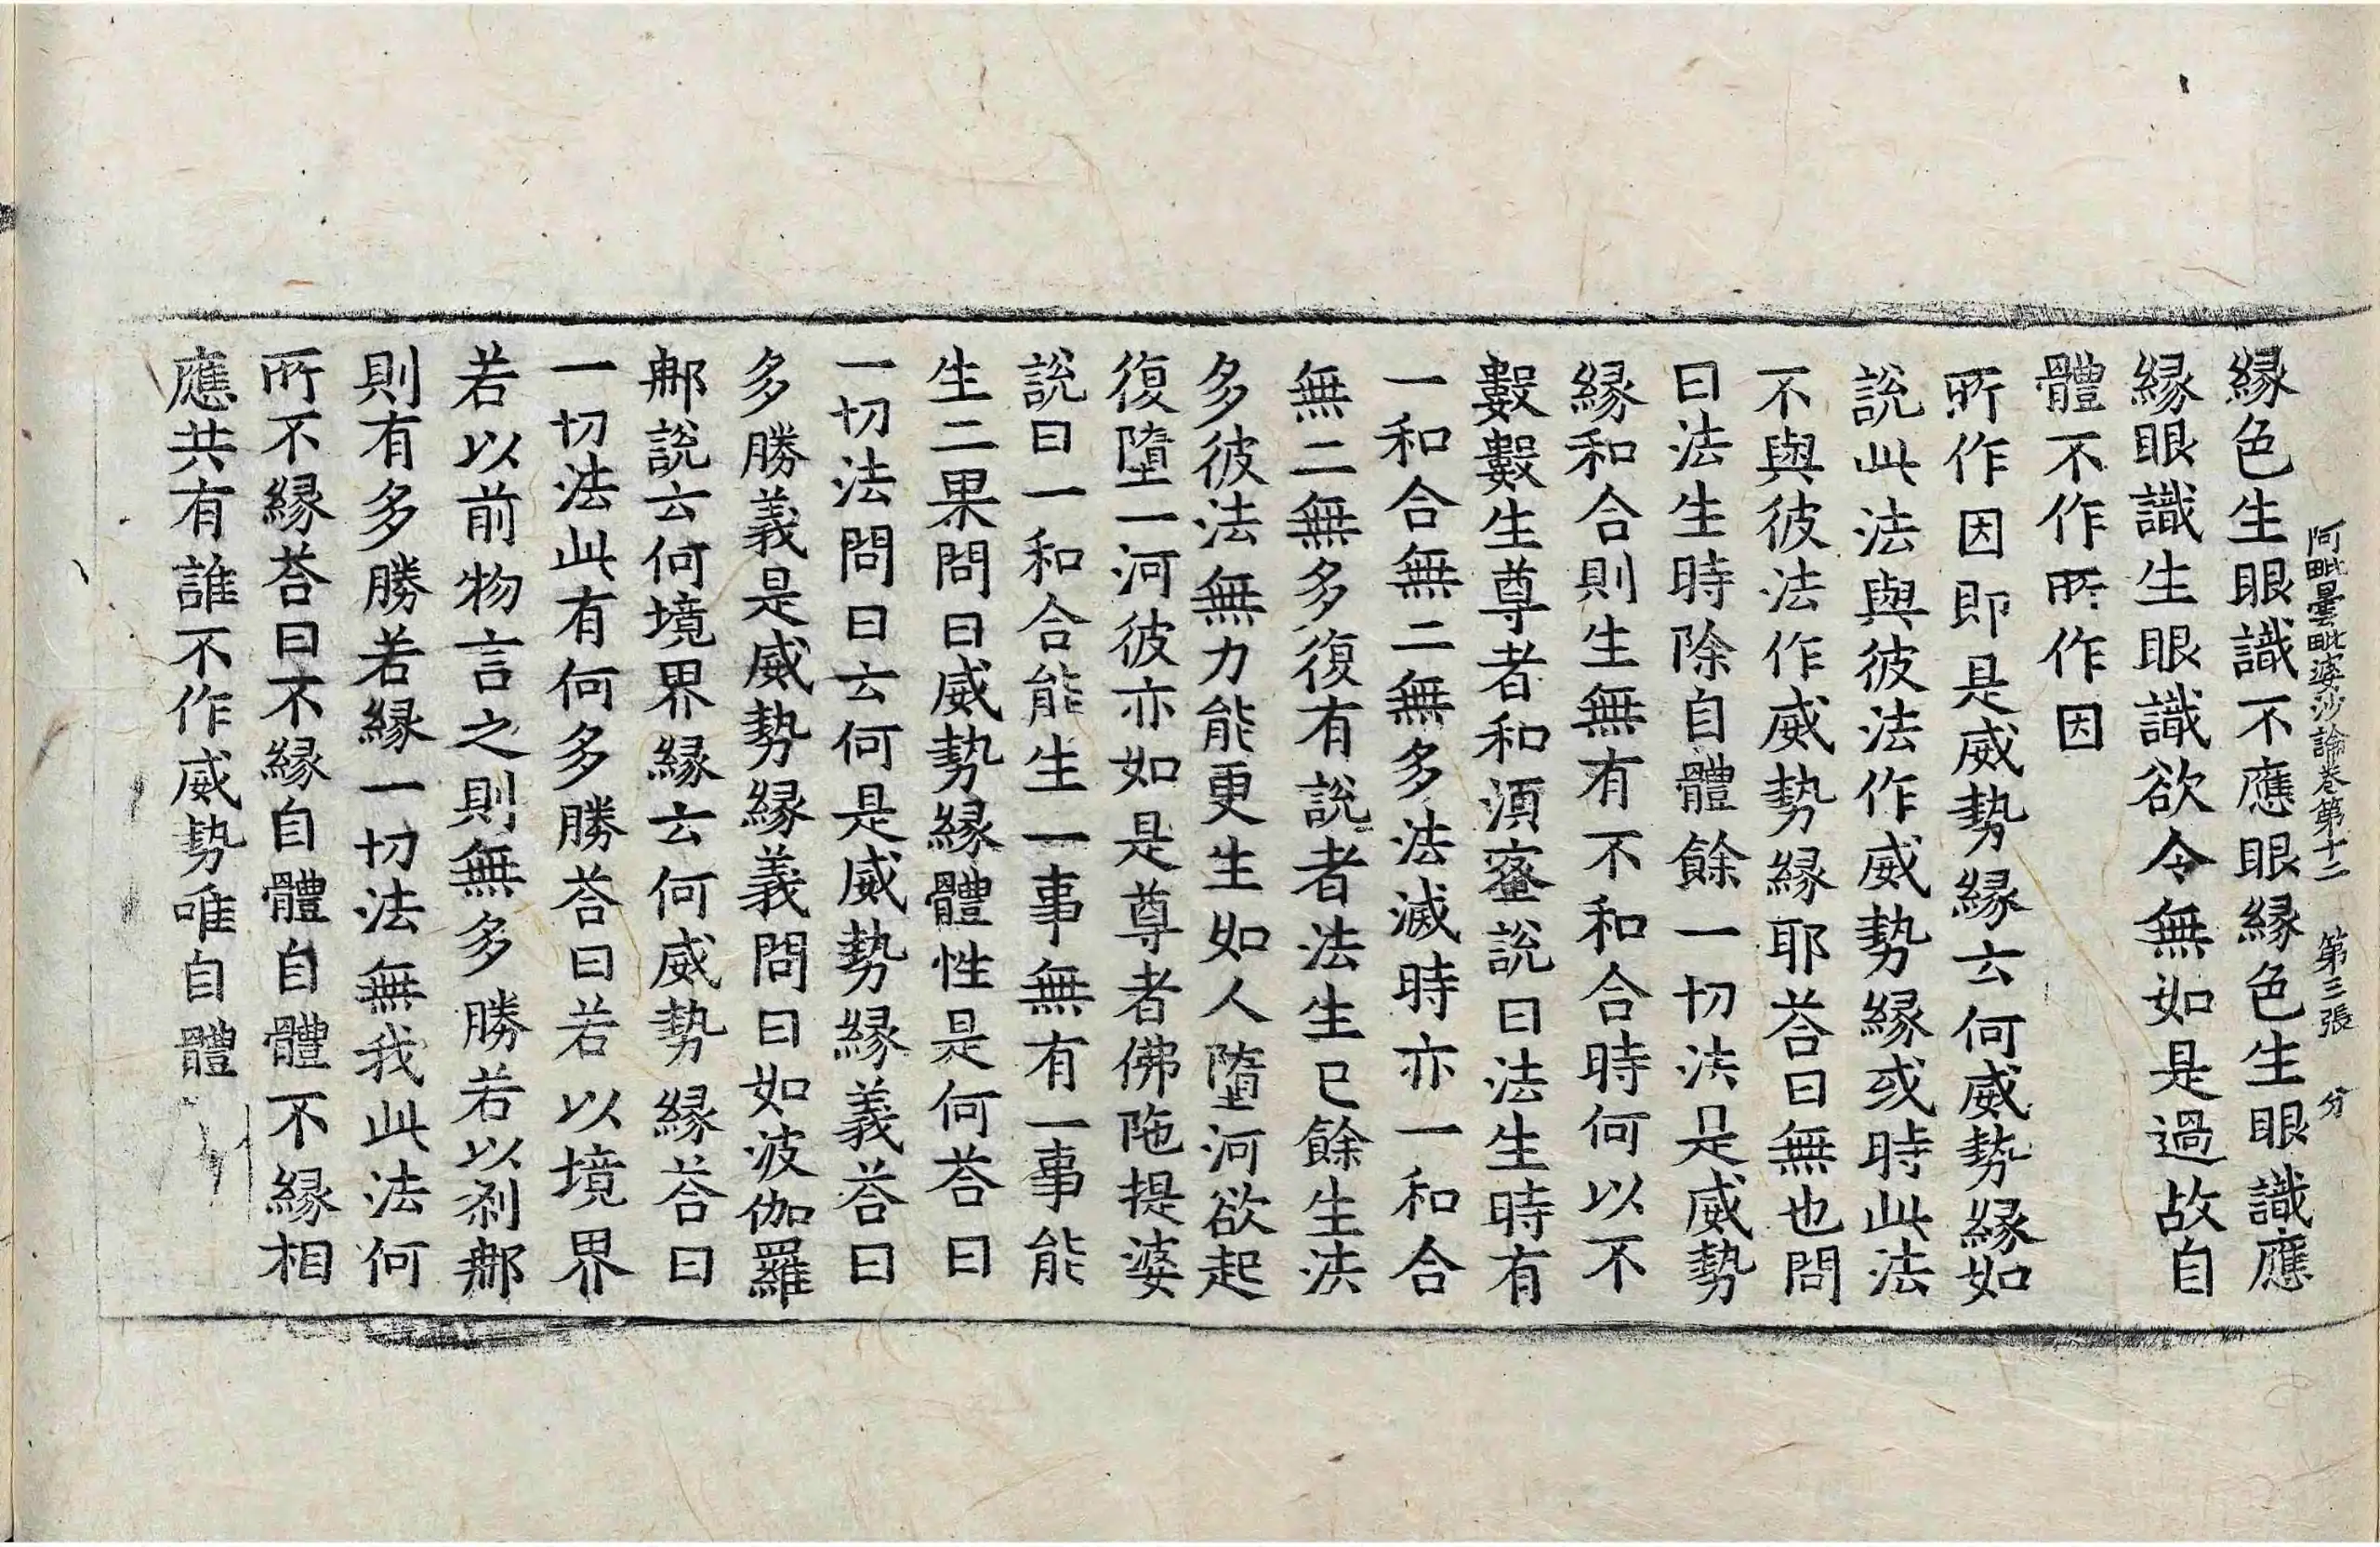 阿毗曇毗婆沙論卷第十二 第三張 分
緣色生眼識不應眼緣色生眼識應
緣眼識生眼識欲令無如是過故自
體不作所作因
所作因即是威勢緣云何威勢緣如
說此法與彼法作威勢緣或時此法
不與彼法作威勢緣耶荅曰無也問
曰法生時除自體餘一切法是威勢
緣和合則生無有不和合時何以不
數數生尊者和須蜜說曰法生時有
一和合無二無多法滅時亦一和合
無二無多復有說者法生已餘生法
多彼法無力能更生如人墮河欲起
復墮一河彼亦如是尊者佛陁提婆
說曰一和合能生一事無有一事能
生二果問曰威勢緣體性是何荅曰
一切法問曰云何是威勢緣義荅曰
多勝義是威勢緣義問曰如波伽羅
那說云何境界緣云何威勢緣荅曰
一切法此有何多勝荅曰若以境界
若以前物言之則無多勝若以剎那
則有多勝若緣一切法無我此法何
所不緣荅曰不緣自體自體不緣相
應共有誰不作威勢唯自體